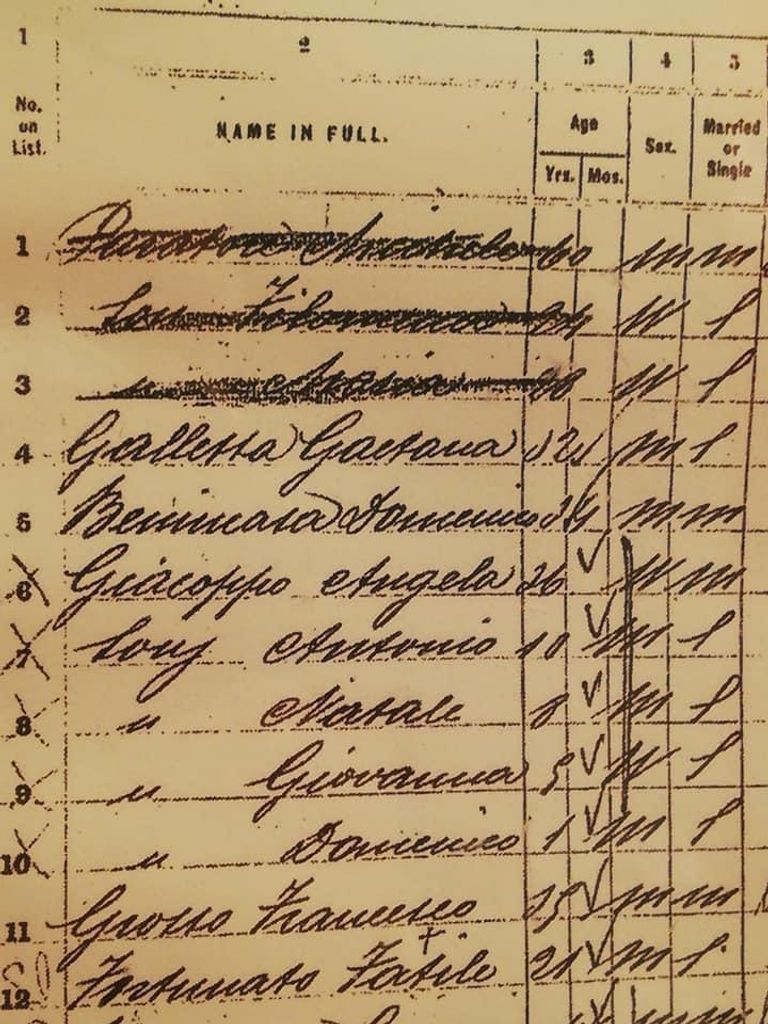 1 2 3 4 5
No. on List.
NAME IN FULL.
Age
Yrs. Mos.
Sex.
Married or Single
1 60 m m
2 Filomena W S
3 " Maria W S
4 Galletta Gaetana 32 m S
5 Domenico 34 m m
6 Giacoppo Angela 36 ✓ W m
7 Antonio 10 ✓ m S
8 " Natale 8 ✓ m S
9 " Giovanna 5 ✓ W S
10 " Domenico 1 ✓ m S
11 Grosso Francesco ✓ m m
12 Fortunato ✓ m S